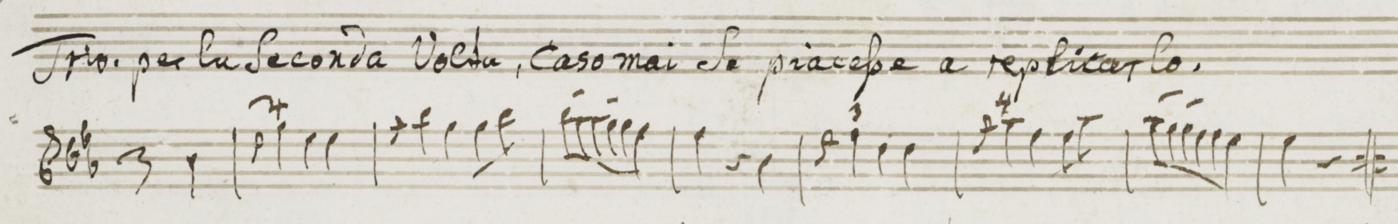 Trio. per la Seconda Volta, Caso mai Se piacesse a replicarlo.
3
4
3
4